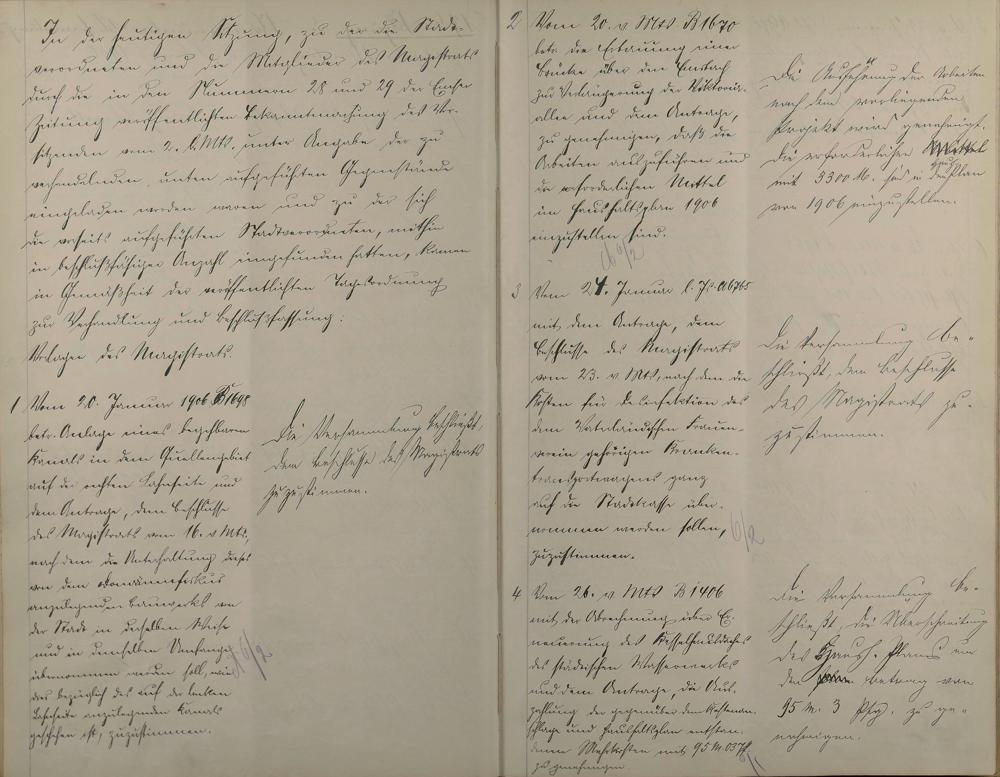 In der heutigen Sitzung, zu der die Stadt-
verordneten und die Mitglieder des Magistrats
durch die in den Nummern 28 und 29 der Emser
Zeitung veröffentlichten Bekanntmachung des Vor-
sitzenden vom 2. l. Mts. unter Angabe der zu
verhandelnden, unten aufgeführten Gegenstände
eingeladen worden waren und zu der sich
die vorseits aufgeführten Stadtverordneten, mithin
in beschlußfähiger Anzahl eingefunden hatten, kamen
in Gemäßheit der veröffentlichten Tagesordnung
zur Verhandlung und Beschlußfassung:
Vorlagen des Magistrats.
1 Vom 20. Januar 1906 B 1698
betr. Anlage eines begehbaren
Kanals in dem Quellengebiet
auf der rechten Lahnseite und
dem Antrage, dem Beschlusse
des Magistrats vom 16. v. Mts,
nach dem die Unterhaltung dieses
von dem Domänenfiskus
anzulegenden Bauwerks von
der Stadt in derselben Weise
und in demselben Umfange
übernommen werden soll, wie
dies bezüglich des auf der linken
Lahnseite anzulegenden Kanals
geschehen ist, zuzustimmen.
6/2
Die Versammlung beschließt,
dem Beschlusse des Magistrats
zuzustimmen.
2 Vom 20. v Mts B 1670
betr. die Erbauung einer
Brücke über den Emsbach
zur Verlängerung der Viktoria-
allee und dem Antrage,
zu genehmigen, daß die
Arbeiten auszuführen und
die erforderlichen Mittel
im Haushaltsplan 1906
einzustellen sind.
6/2
Die Ausführung der Arbeiten
nach dem vorliegenden
Projekt wird genehmigt.
Die erforderlichen Mittel
mit 3300 M. sind in den Hausplan
von 1906 einzustellen.
3 Vom 24. Januar l. Js. A 6765
mit dem Antrage, dem
Beschlusse des Magistrats
vom 23. v. Mts, nach dem die
Kosten für Desinfektion des
dem Vaterländischen Frauen-
verein gehörigen Kranken-
transportwagens ganz
auf die Stadtkasse über-
nommen werden sollen,
zuzustimmen.
6/2
Die Versammlung be-
schließt, dem Beschlusse
des Magistrats zu-
zustimmen.
4 Vom 26. v Mts B 1406
mit der Abrechnung über Er-
neuerung des Kesselhausdaches
des städtischen Wasserwerks
und dem Antrage, die Aus-
zahlung der gegenüber dem Kostenan-
schlage und Haushaltsplan entstan-
denen Mehrkosten mit 95 M. 03 Pf
zu genehmigen.
Die Versammlung be-
schließt, die Überschreitung
des Haush. Plans um
den Betrag von
95 M. 3 Pfg. zu ge-
nehmigen.